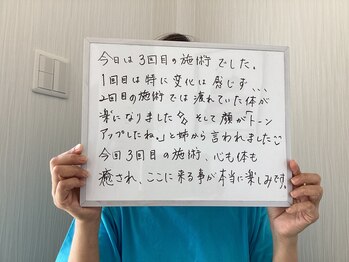 今日は3回目の施術でした。
1回目は特に変化は感じず、、、
2回目の施術では疲れていた体が
楽になりました そして顔が「トーン
アップしたね。」と姉から言われました
今回3回目の施術、心も体も
癒され、ここに来る事が本当に楽しみです。